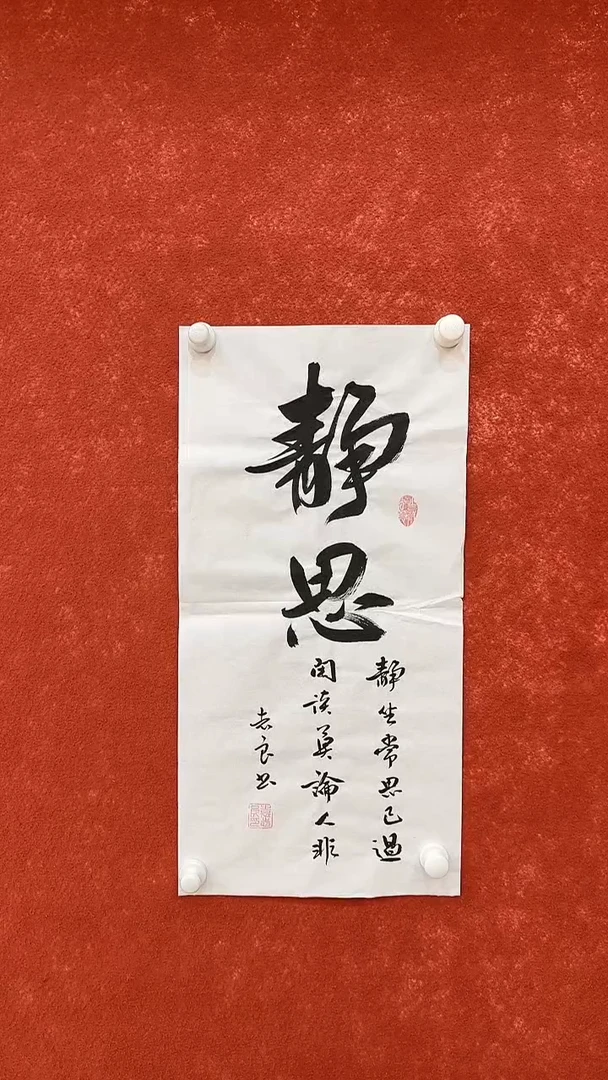 静思
静坐常思己過
闲谈莫論人非
志良书